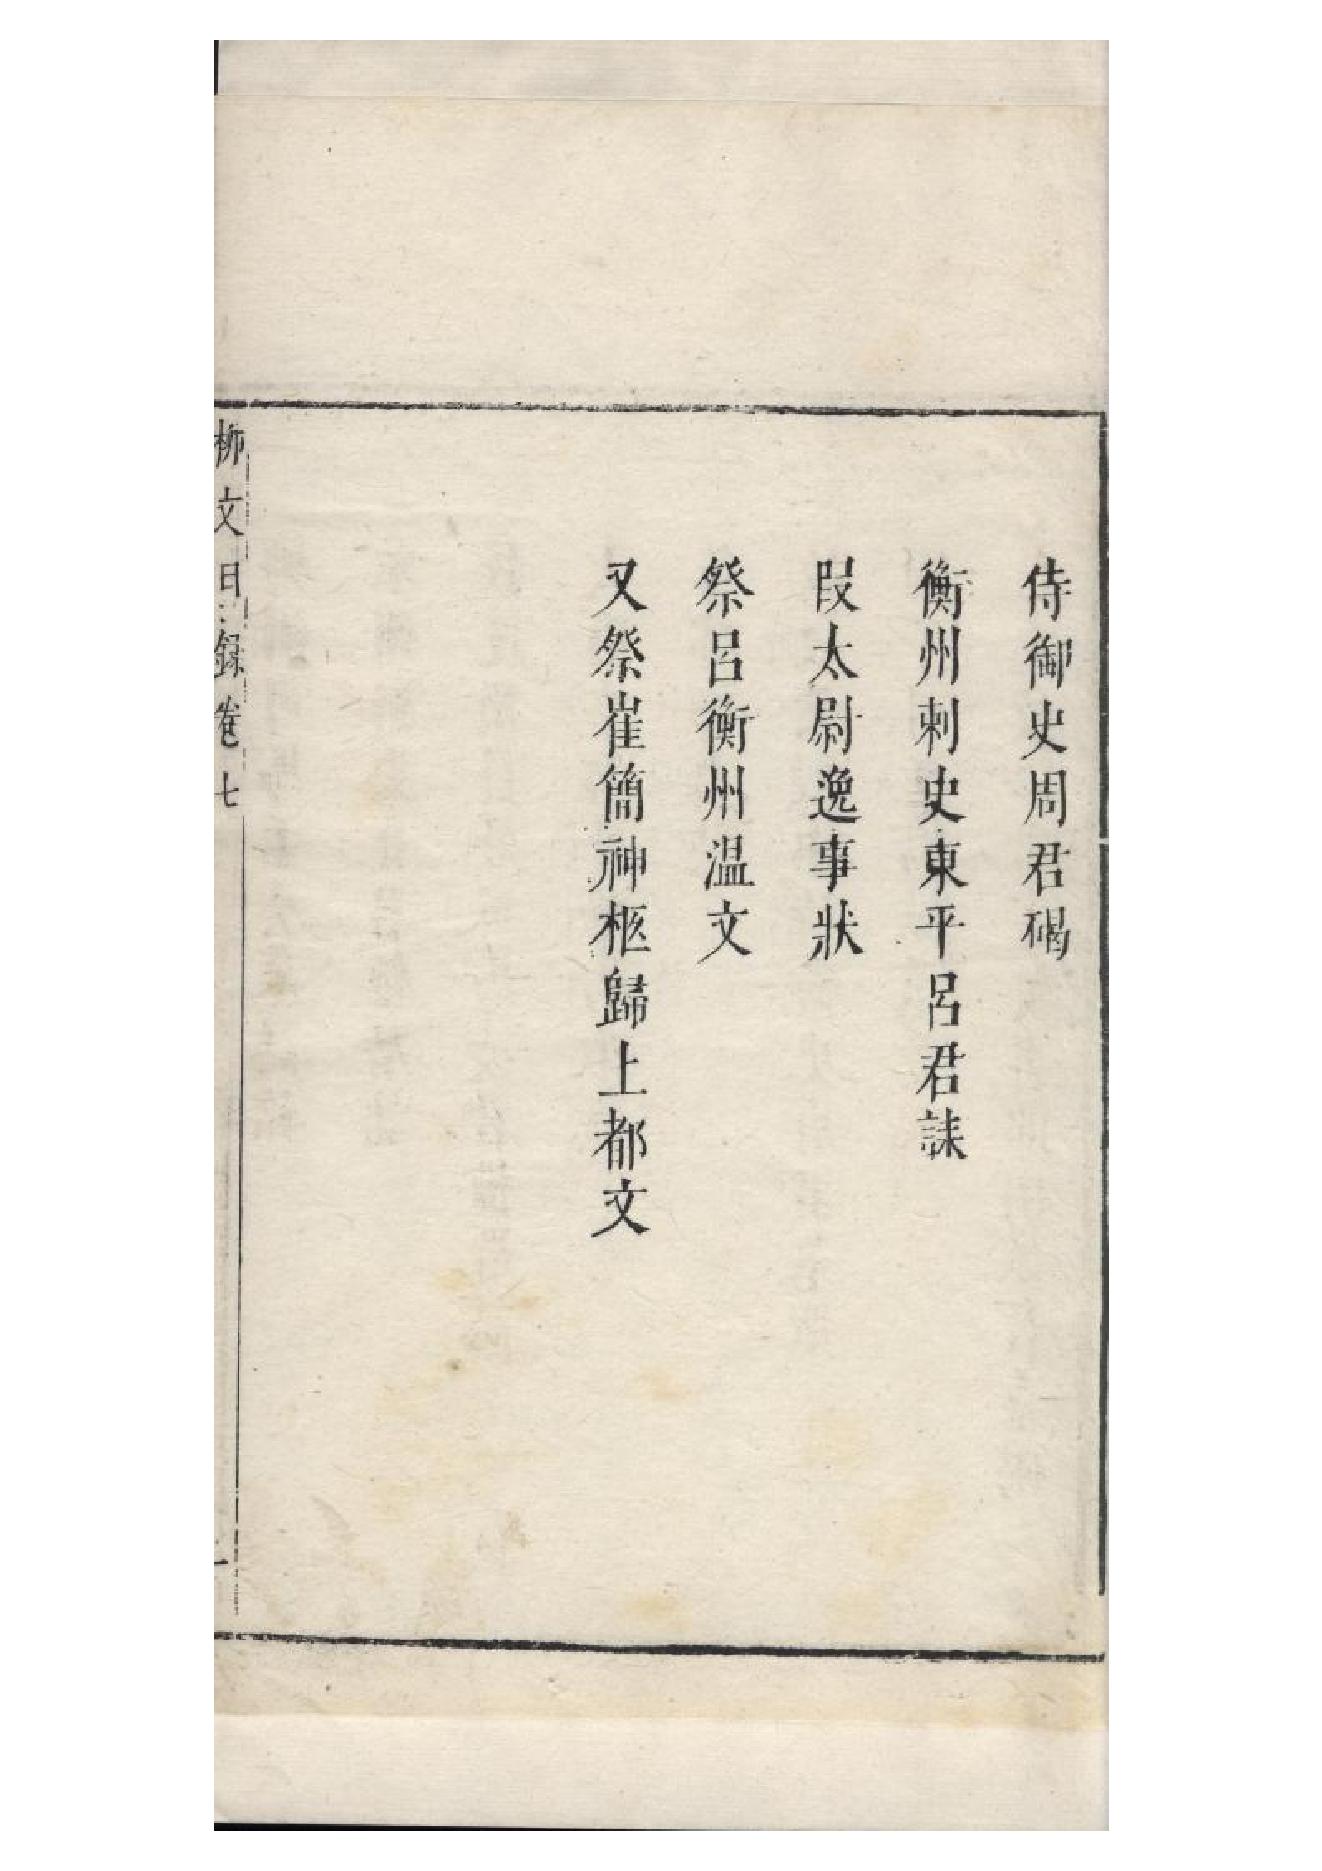 侍御史周君碣
衡州刺史東平呂君誄
段太尉逸事狀
祭呂衡州温文
又祭崔簡神柩歸上都文
柳文目錄卷七
一